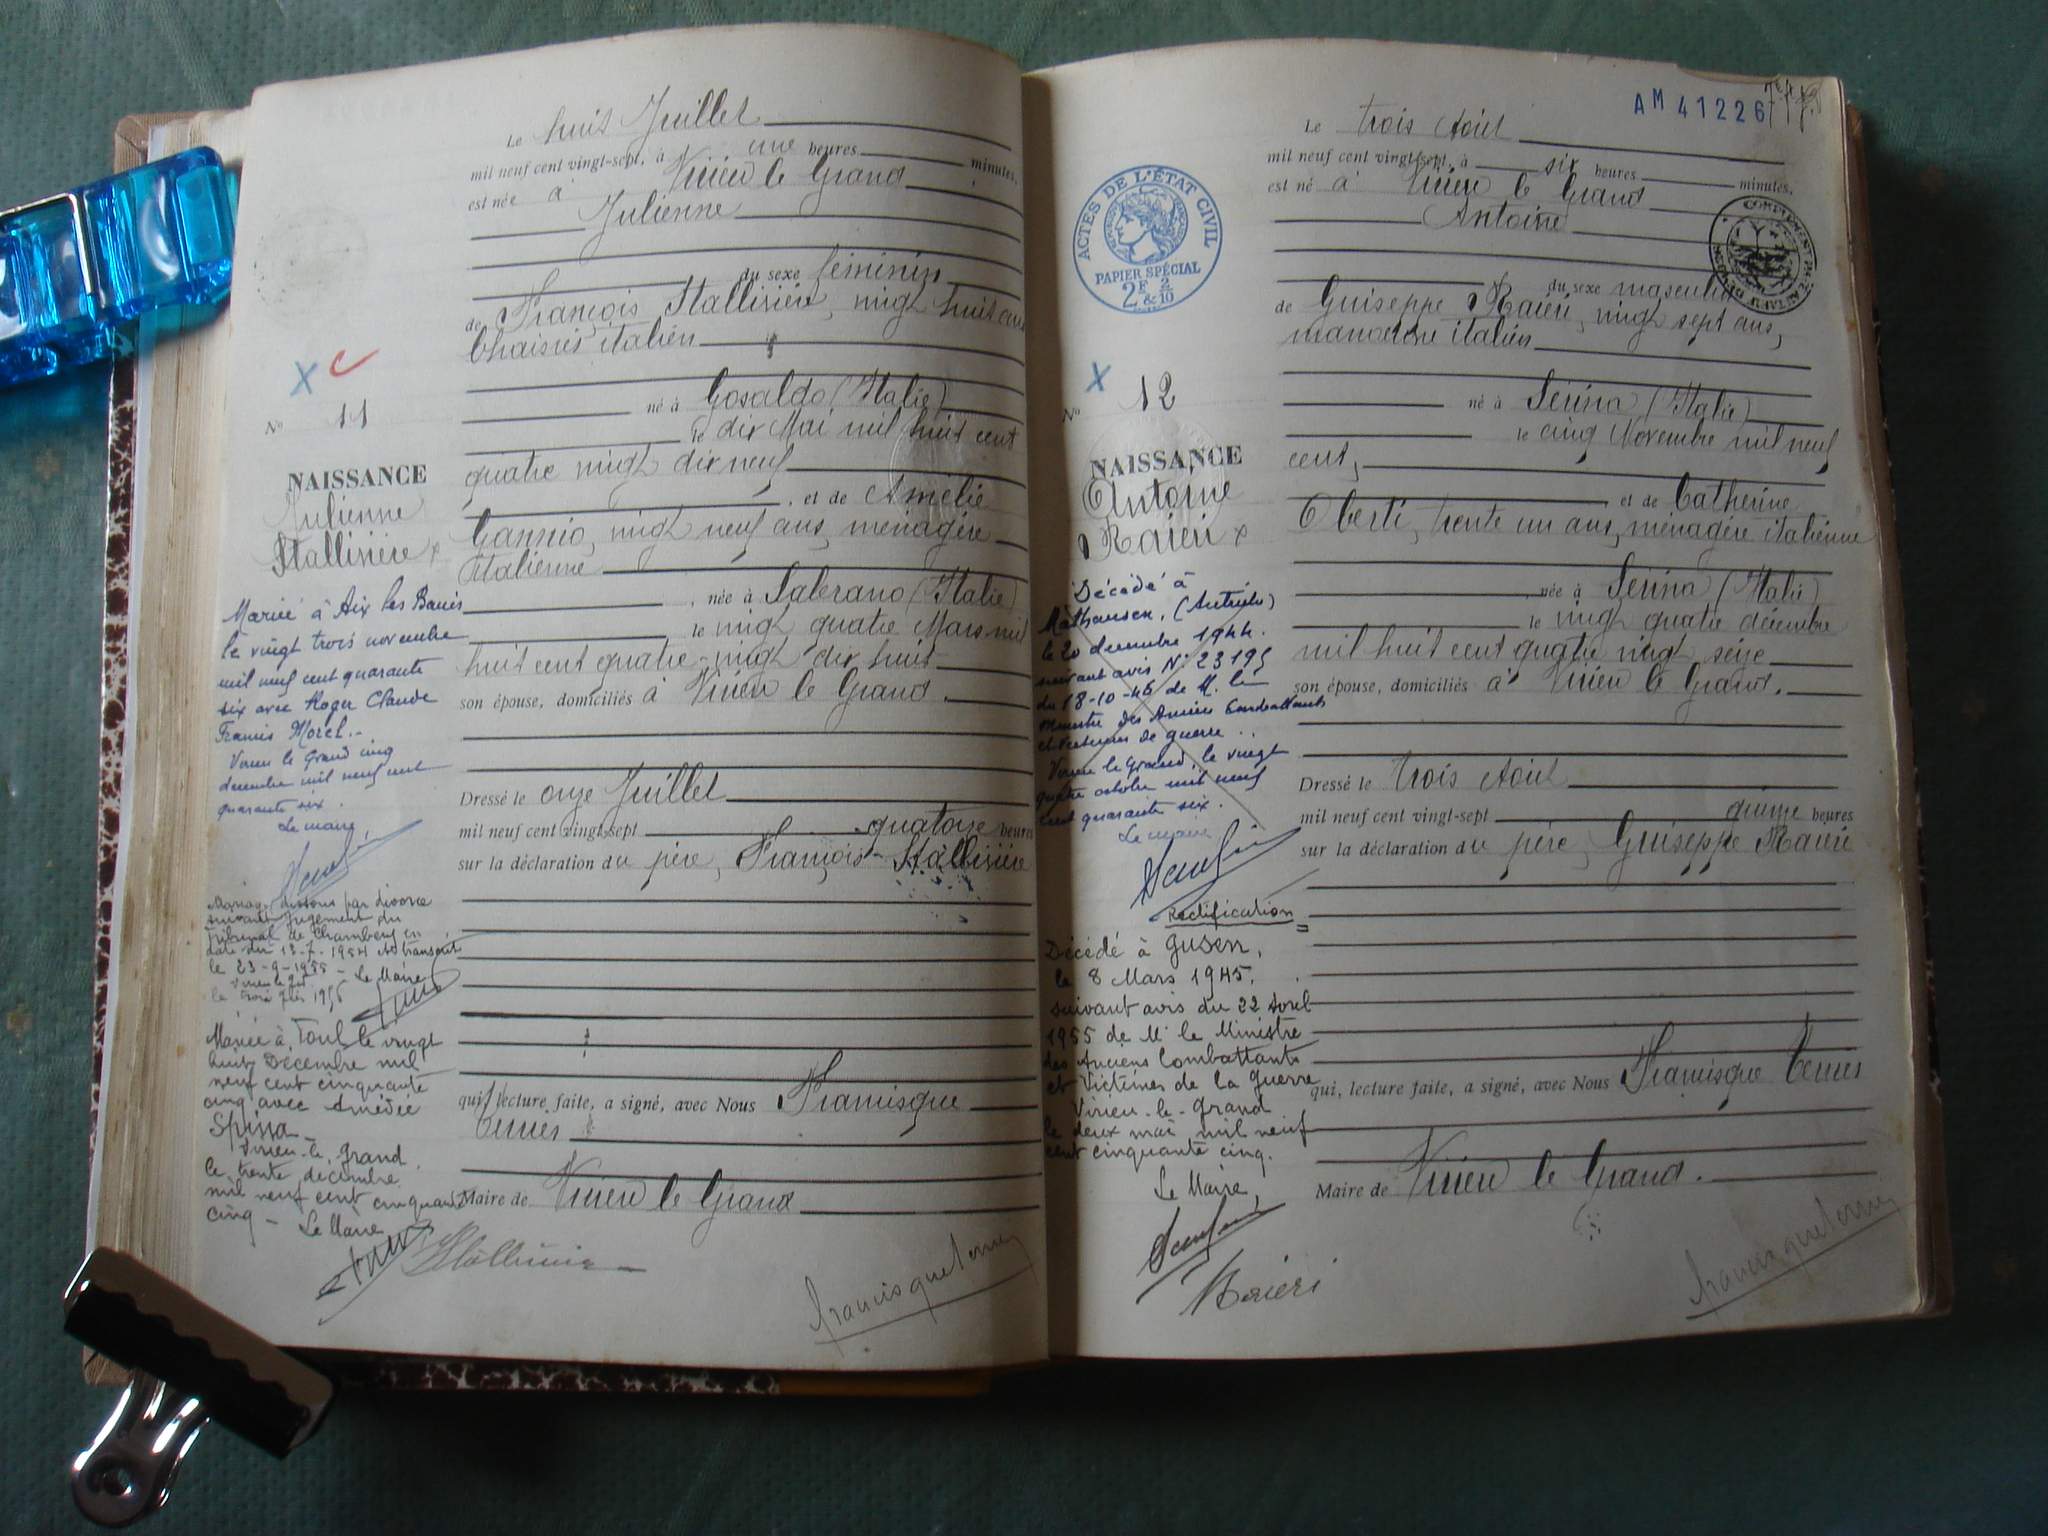 Le huit Juillet
mil neuf cent vingt-sept, à une heures minutes,
est née à Virieu le Grand
Julienne
du sexe féminin
de François Stallivière, vingt huit ans
italien
N° 11
né à Gosaldo (Italie)
le dix Mai mil huit cent
quatre vingt dix neuf
NAISSANCE
Julienne
Stallivière x
, et de Amélie
vingt neuf ans, ménagère
italienne
, née à Salerano (Italie)
le vingt quatre Mars mil
huit cent quatre-vingt dix huit
son épouse, domiciliés à Virieu le Grand.
Mariée à Aix les Bains
le vingt trois novembre
mil neuf cent quarante
six avec Roger Claude
Francis Morel.-
Virieu le Grand cinq
décembre mil neuf cent
quarante six.
Le maire,
Dressé le onze Juillet
mil neuf cent vingt-sept quatorze heures
sur la déclaration du père, François Stallivière
Mariage dissous par divorce
suivant jugement du
Tribunal de Chambéry en
date du 13-7-1954 transcrit
le 23-9-1955 - Le Maire
Mariée à Toul le vingt
huit Décembre mil
neuf cent cinquante
cinq avec Amédée
Spissa
Virieu-le-Grand
le trente décembre
mil neuf cent cinquante
cinq - Le Maire
qui, lecture faite, a signé, avec Nous Francisque
Maire de Virieu le Grand
Stallivière
AM 41226
Le trois Août
mil neuf cent vingt-sept, à six heures minutes,
est né à Virieu le Grand
Antoine
ACTES DE L'ÉTAT CIVIL
PAPIER SPÉCIAL
2F & 2/10
du sexe masculin
de Guiseppe Raiéri, vingt sept ans,
manoeuvre italien
N° 12
né à Serina (Italie)
le cinq Novembre mil neuf
cent,
NAISSANCE
Antoine
Raiéri x
et de Catherine
Oberti, trente un ans, ménagère italienne
, née à Serina (Italie)
le vingt quatre décembre
mil huit cent quatre vingt seize
son épouse, domiciliés à Virieu le Grand.
Décédé à
Mathausen, (Autriche)
le 20 décembre 1944.
suivant avis N° 23195
du 18-10-46 de M. le
Ministre des Anciens Combattants
et Victimes de guerre..
Virieu le Grand, le vingt
quatre octobre mil neuf
cent quarante six.
Le maire
Dressé le trois Août
mil neuf cent vingt-sept quinze heures
sur la déclaration du père, Guiseppe Raiéri
Rectification
Décédé à Gusen,
le 8 Mars 1945.
suivant avis du 22 Avril
1955 de Mr le Ministre
des Anciens Combattants
et Victimes de la Guerre
Virieu-le-Grand
le deux mai mil neuf
cent cinquante cinq.
Le Maire,
qui, lecture faite, a signé, avec Nous Francisque
Maire de Virieu le Grand.
Raiéri